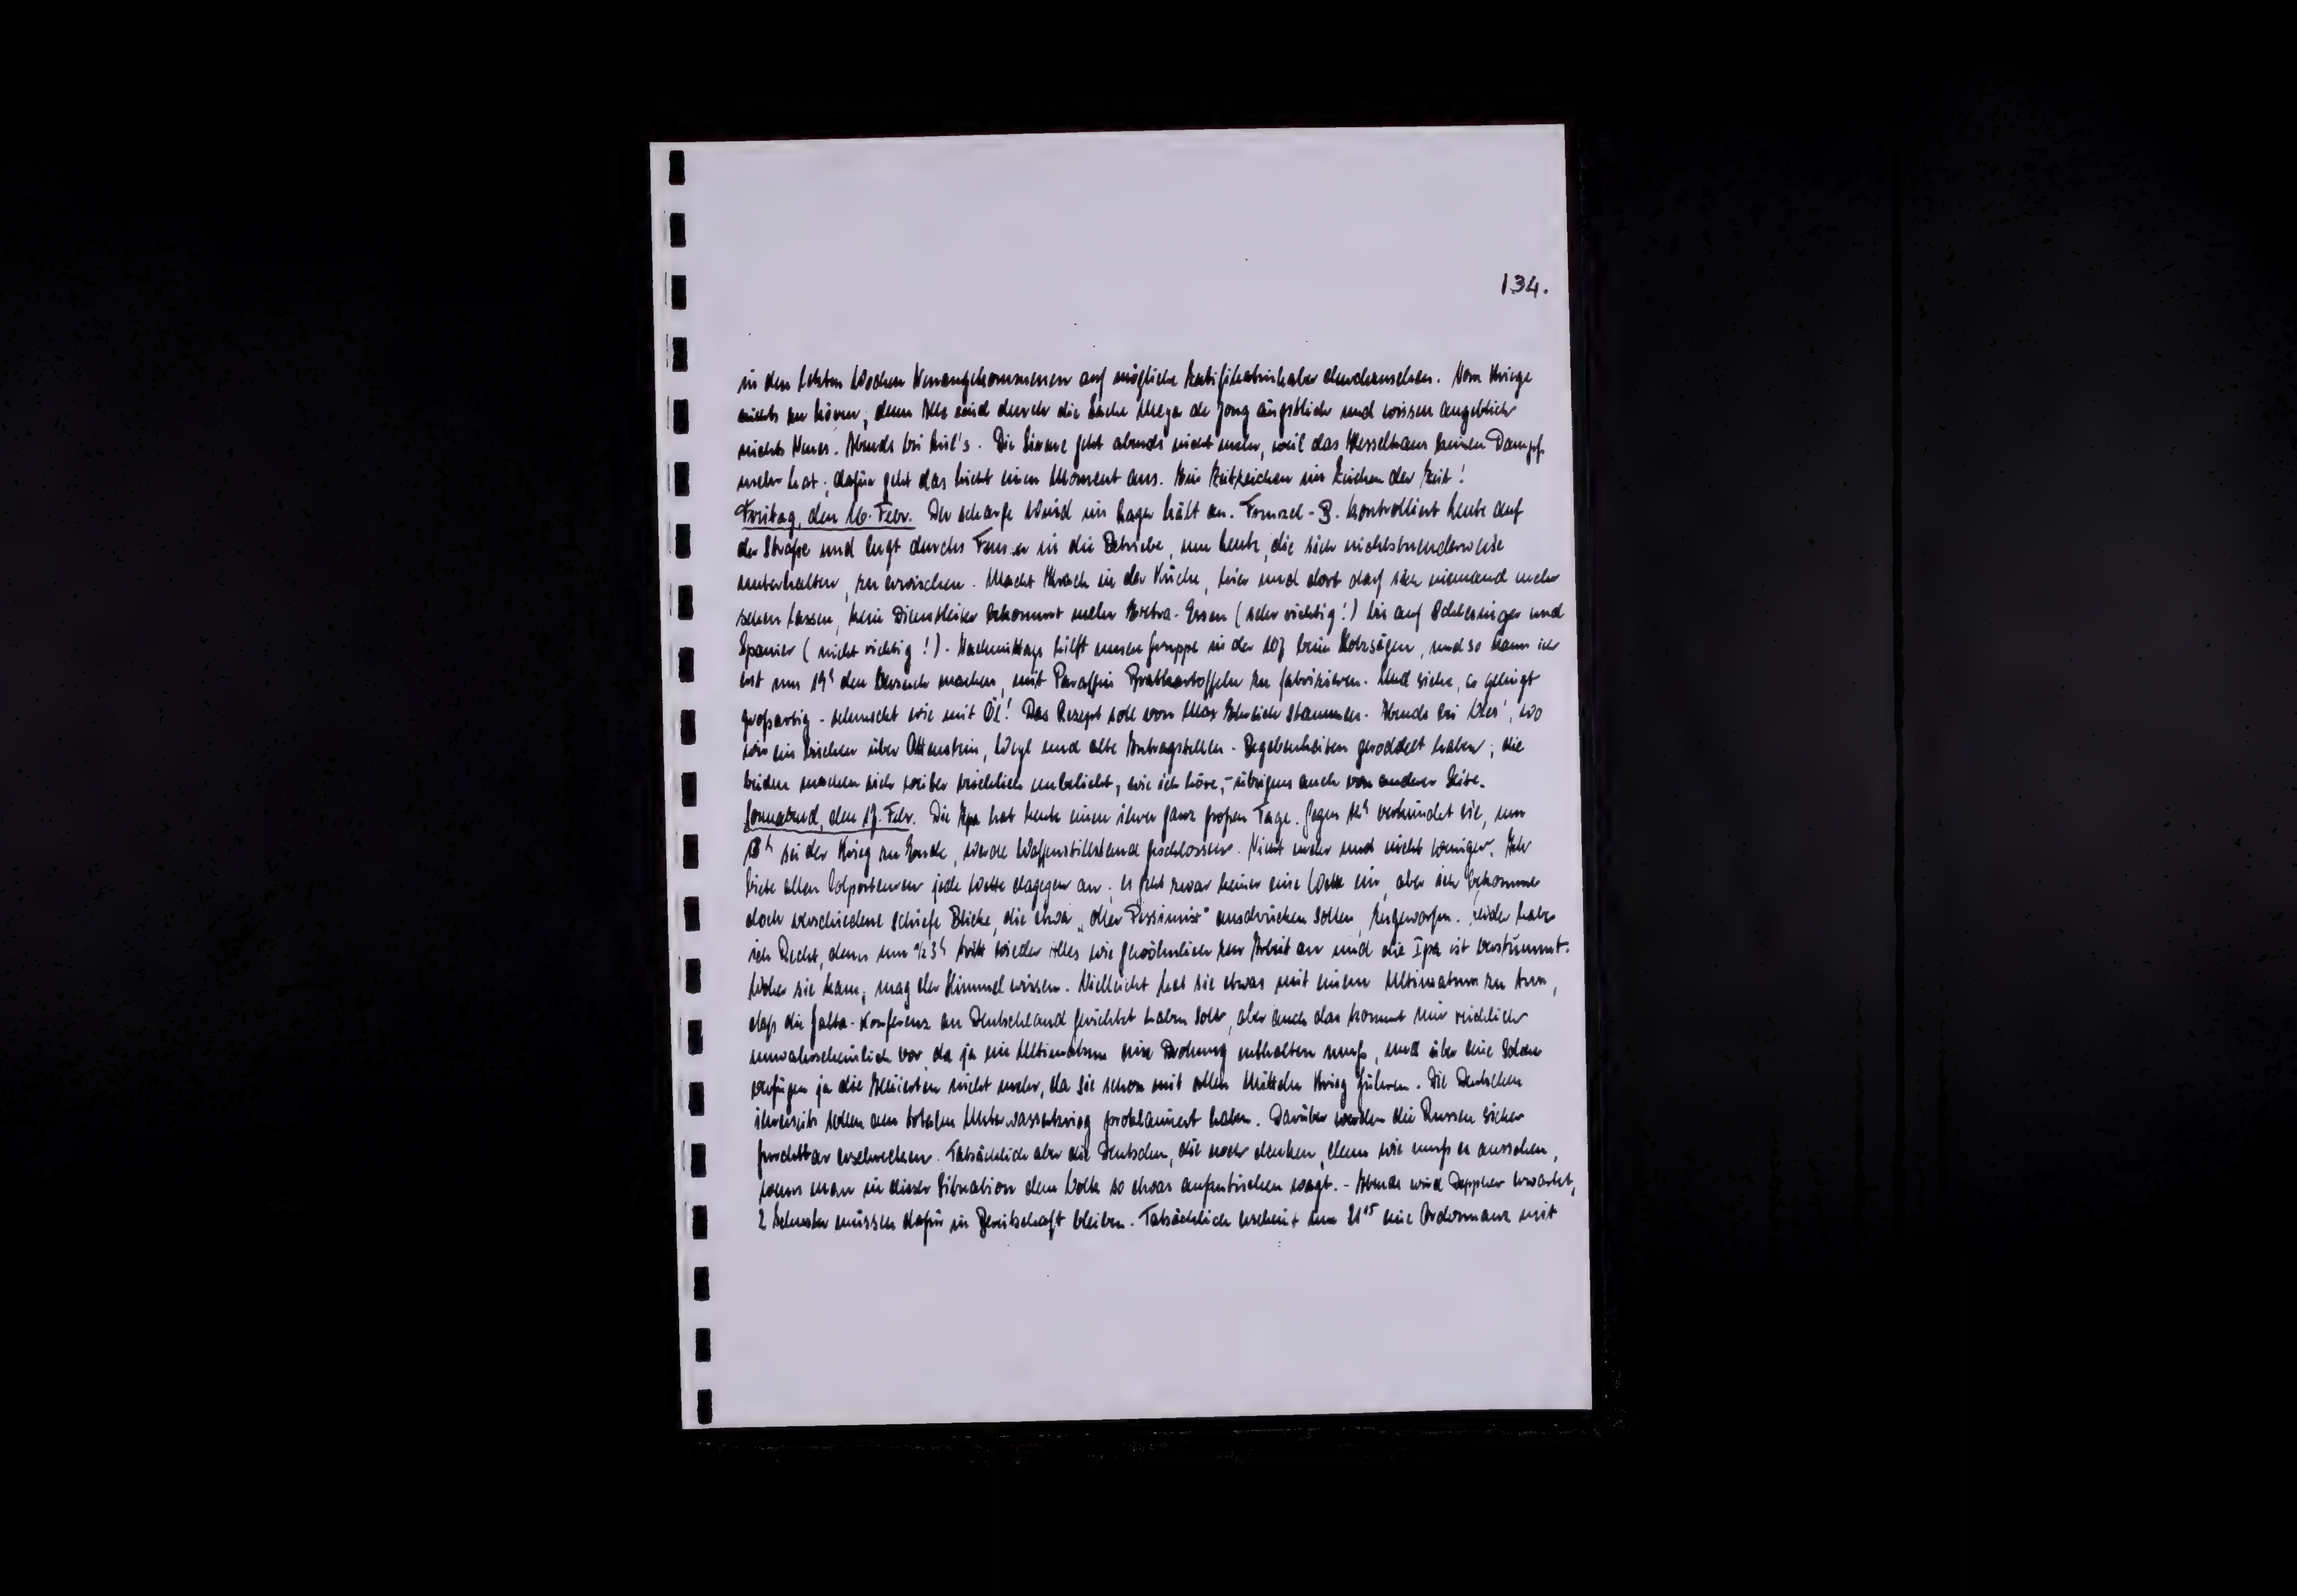 134.
in den letzten Wochen Neuangekommenen auf mögliche Zertifikatsinhaber durchzusehen. Vom Kriege
nichts zu hören, denn Alle sind durch die Sache Meyer de Jong ängstlich und wissen angeblich
nichts Neues. Abends bei . Die Sirene geht abends nicht mehr, weil das Kesselhaus keinen Dampf
mehr hat; dafür geht das Licht einen Moment aus. Ein Zeitzeichen im Zeichen der Zeit!
Freitag, den 16. Febr. Der scharfe Wind im Lager hält an. kontrolliert heute auf
der Straße und lugt durchs Fenster in die Betriebe, um Leute, die sich nichtstuenderweise
unterhalten, zu erwischen. Macht Krach in der Küche, hier und dort darf sich niemand mehr
sehen lassen, kein Dienstleiter bekommt mehr Extra-Essen (sehr richtig!) bis auf Schlesinger und
Spanier (nicht richtig!). Nachmittags hilft unsere Gruppe in der 107 beim Holzsägen, und so kann ich
erst um 19h den Versuch machen, mit Paraffin Bratkartoffeln zu fabrizieren. Und siehe, es gelingt
großartig - schmeckt wie mit Öl! Das Rezept soll von Max Ehrlich stammen. Abends bei , wo
wir ein bischen über Ottenstein, Weyl und alte Antragstellen-Begebenheiten geroddelt haben; die
beiden machen sich weiter reichlich unbeliebt, wie ich höre, - übrigens auch von anderer Seite.
Sonnabend, den 17. Febr. Die Ipa hat heute einen ihrer ganz großen Tage. Gegen 12h verkündet sie, um
13h sei der Krieg zu Ende, werde Waffenstillstand geschlossen. Nicht mehr und nicht weniger. Ich
biete allen Colporteuren jede Wette dagegen an; es geht zwar keiner eine Wette ein, aber ich bekomme
doch verschiedene schiefe Blicke, die etwa „oller Pessimist“ ausdrücken sollen, zugeworfen. Leider habe
ich Recht, denn um ½3h tritt wieder Alles wie gewöhnlich zur Arbeit an und die Ipa ist verstummt.
Woher sie kam, mag der Himmel wissen. Vielleicht hat sie etwas mit einem Ultimatum zu tun,
daß die Jalta-Konferenz an Deutschland gerichtet haben soll, aber auch das kommt mir reichlich
unwahrscheinlich vor, da ja ein Ultimatum eine Drohung enthalten muß, und über eine solche
verfügen ja die Alliierten nicht mehr, da sie schon mit allen Mitteln Krieg führen. Die Deutschen
ihrerseits sollen den totalen Unterwasserkrieg proklamiert haben. Darüber werden die Russen sicher
furchtbar erschrecken. Tatsächlich aber die Deutschen, die noch denken, denn wie muß es aussehen,
wenn man in dieser Situation dem Volk so etwas aufzutischen wagt. - Abends wird Deppner erwartet,
2 müssen dafür in Bereitschaft bleiben. Tatsächlich erscheint um 21 15 eine Ordonnanz mit